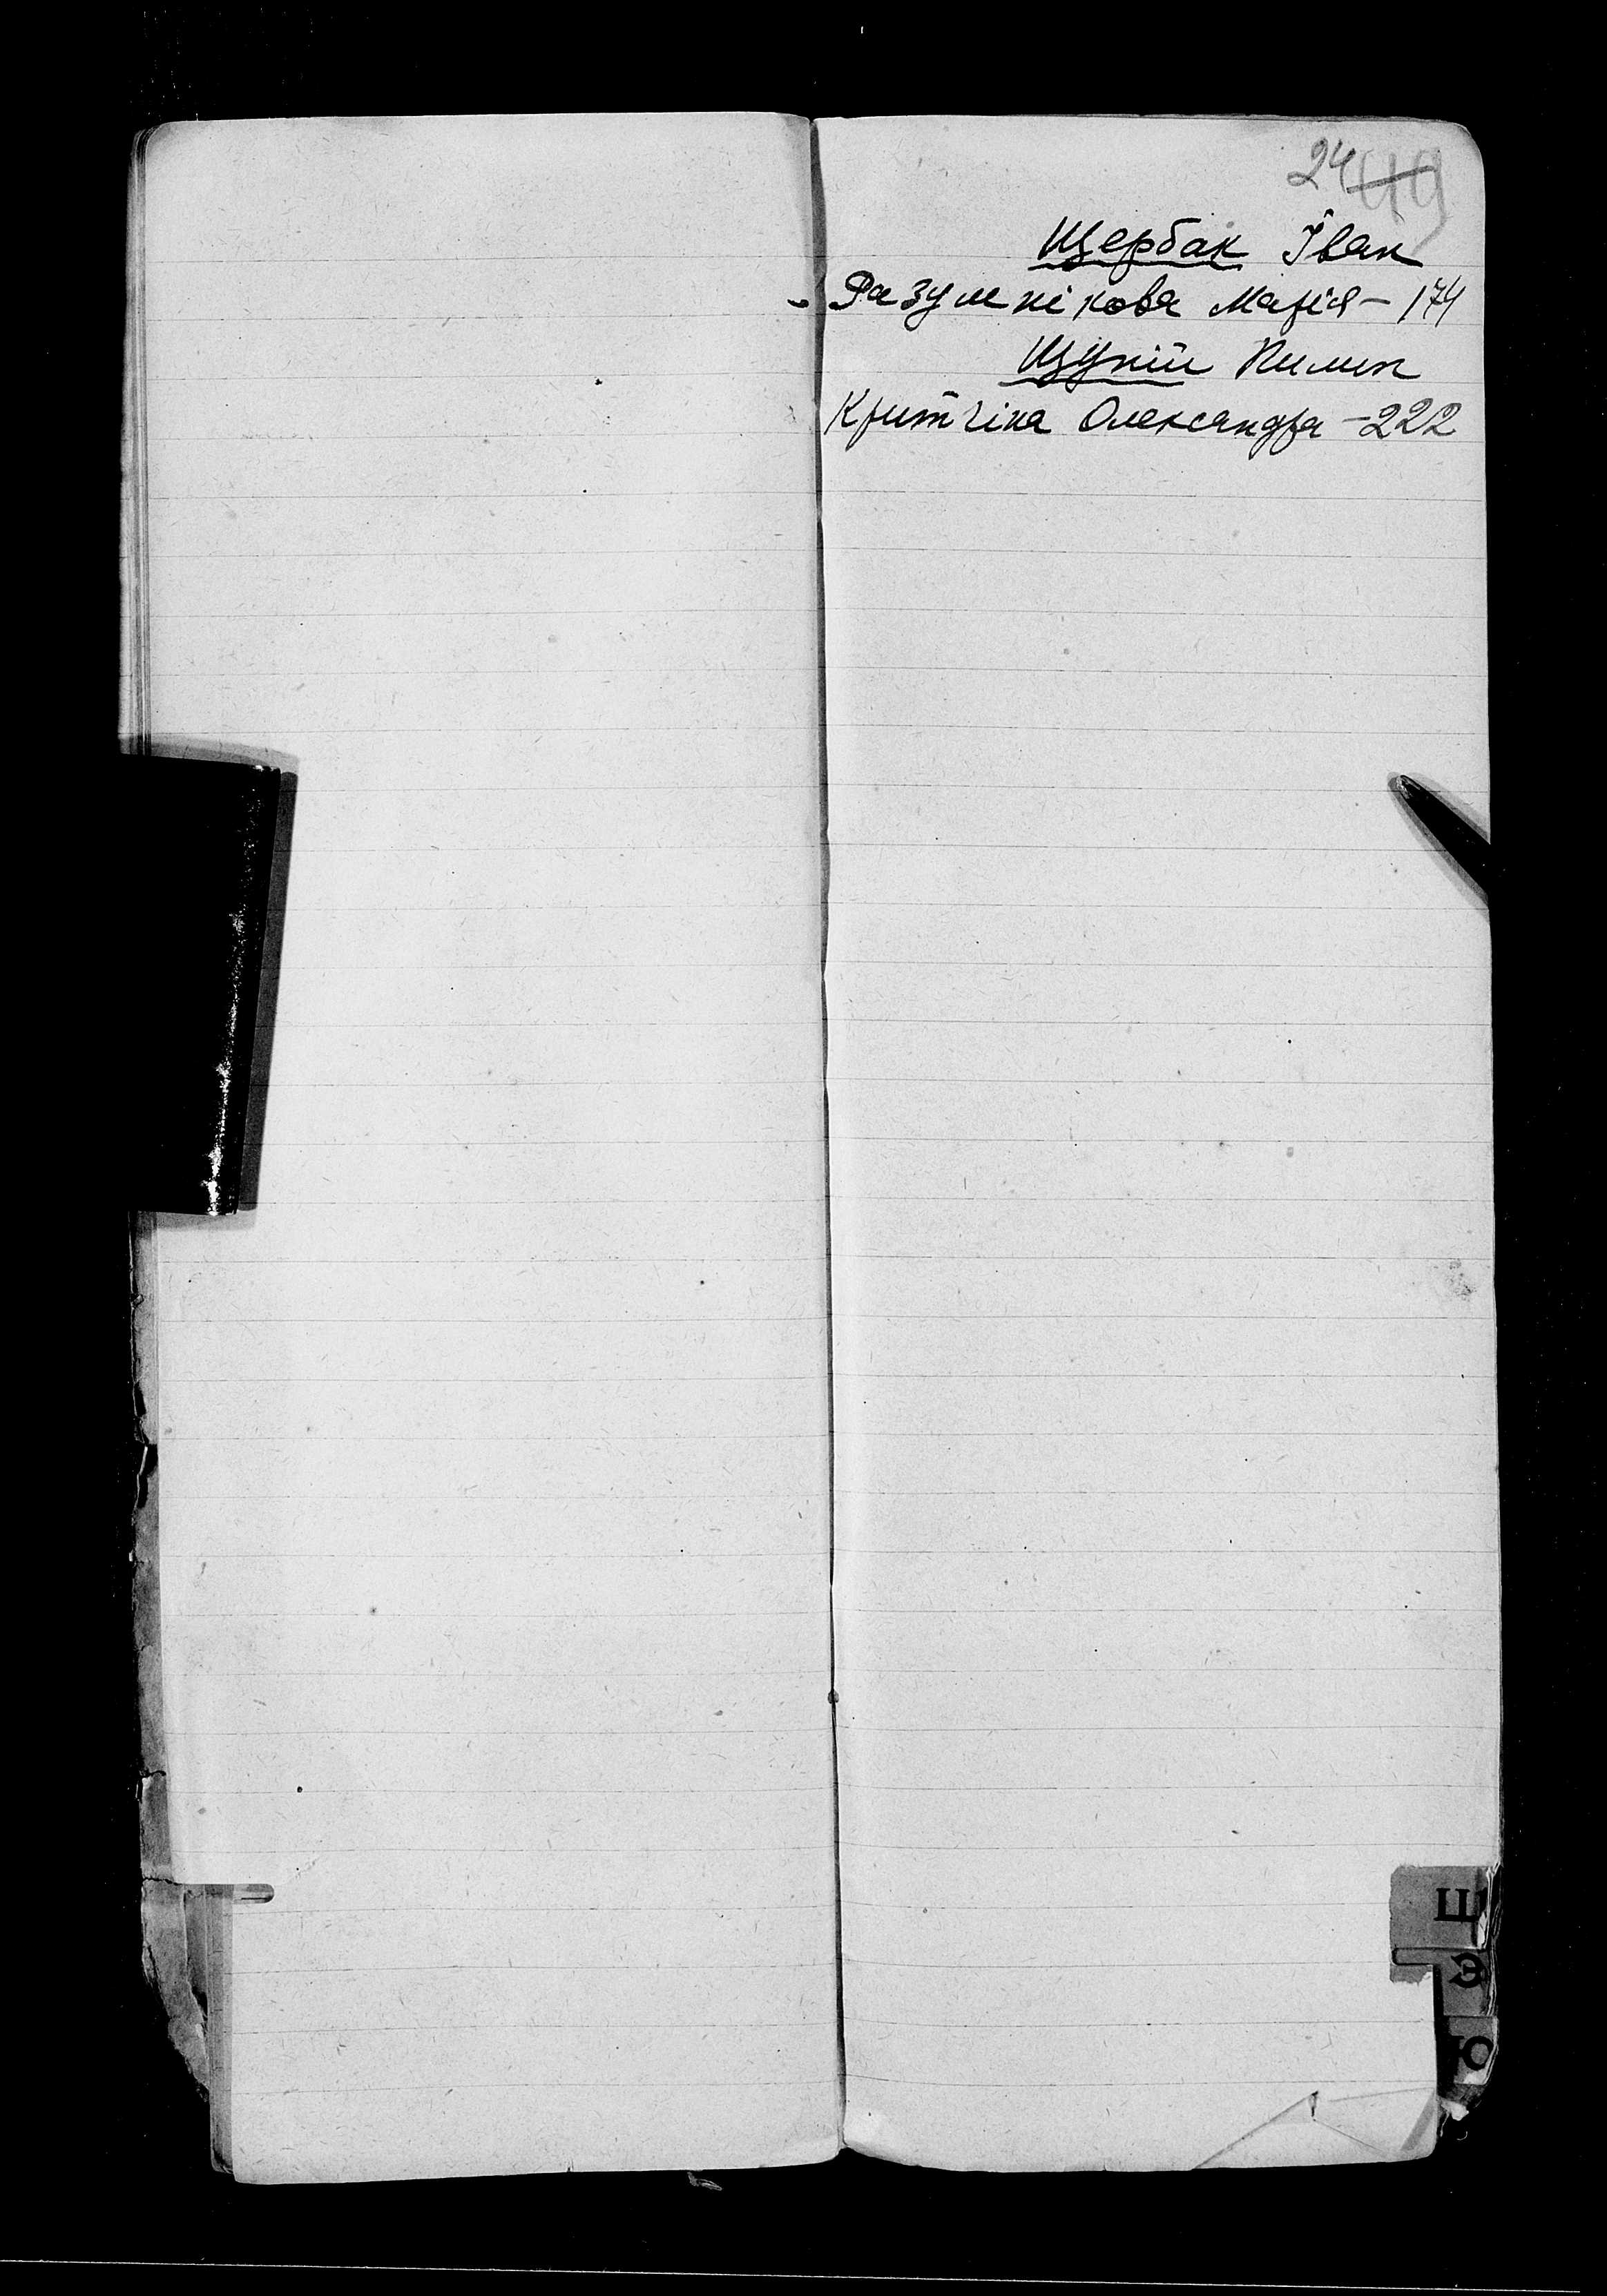 24 49
Щербак Іван
Разумнікова Марія - 174
Щупій Пилип
Критчіна Олександра - 222
Щ
Э
Ю